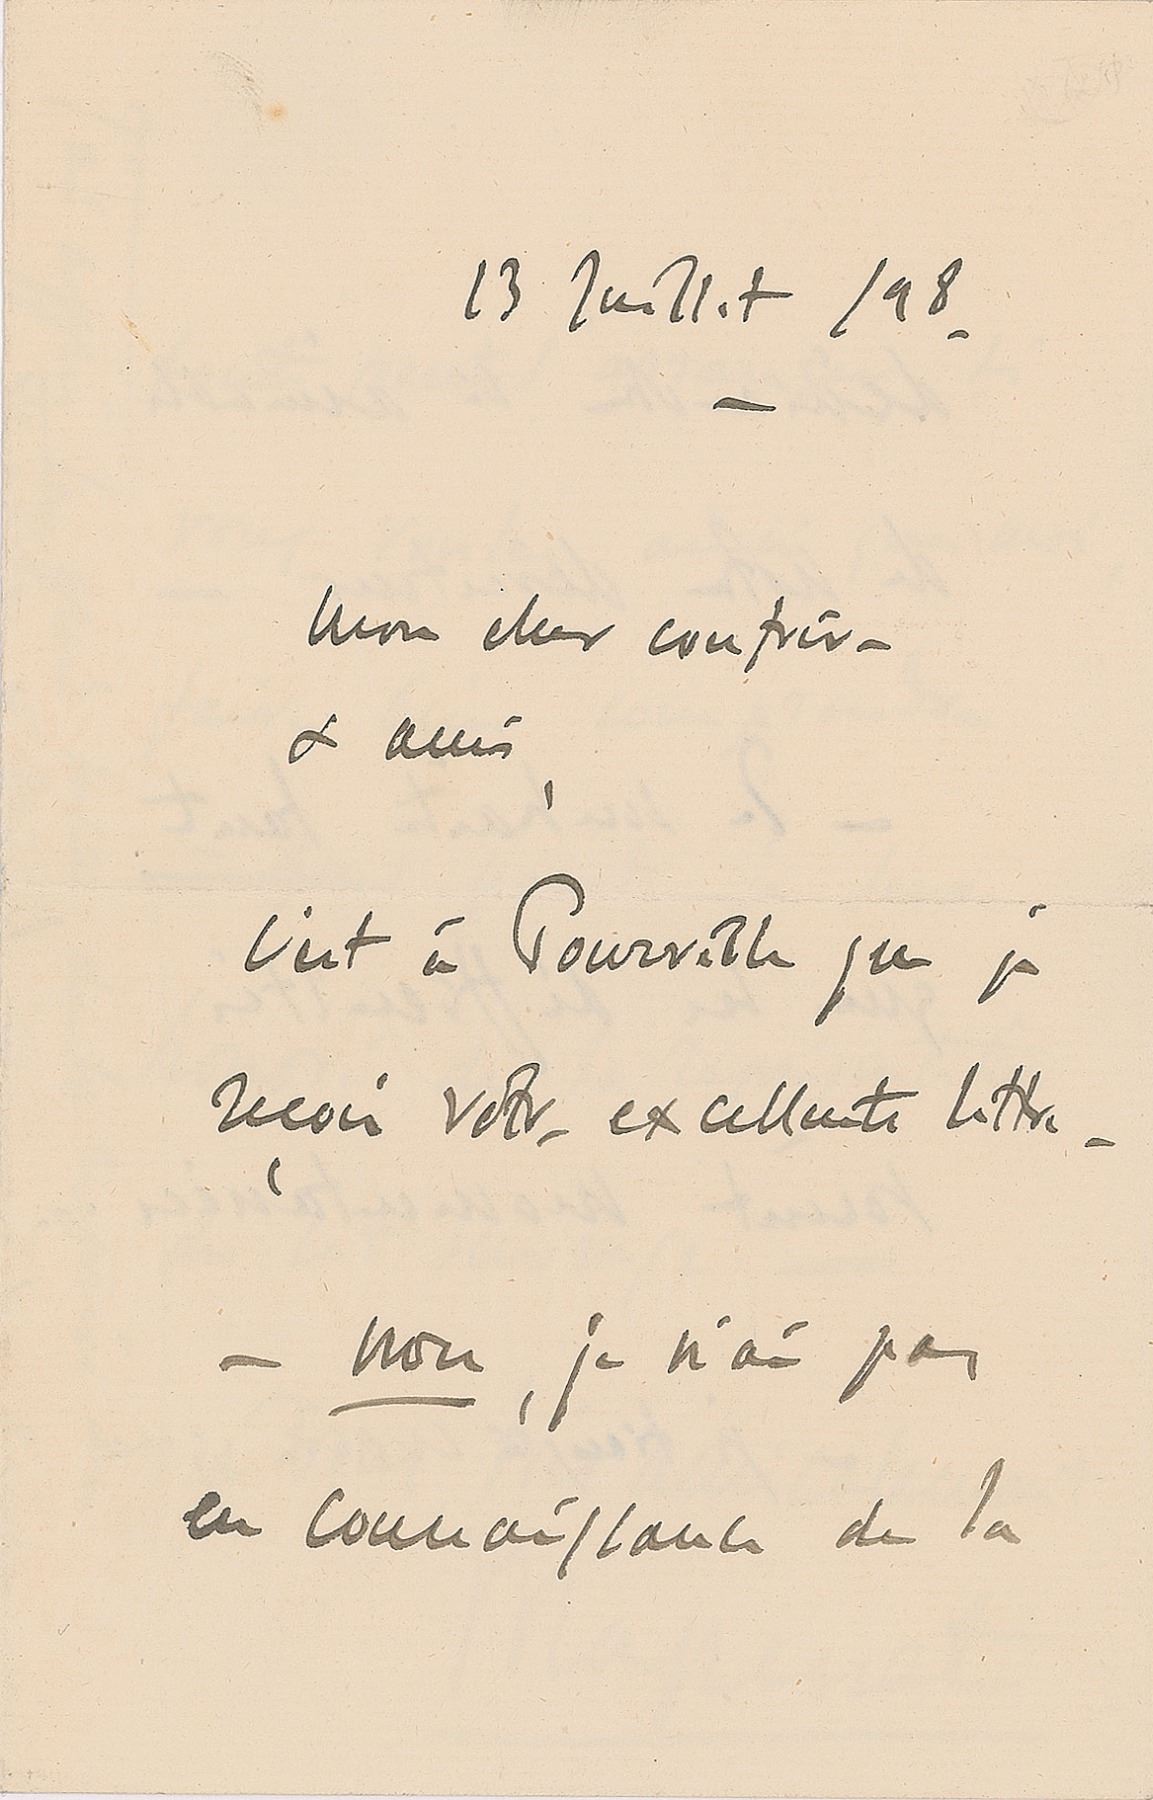 13 Juillet /98_
—
Mon cher confrère
& ami,
C'est à Pourville que je
reçois votre excellente lettre_
— non, je n'ai pas
eu connaissance de la